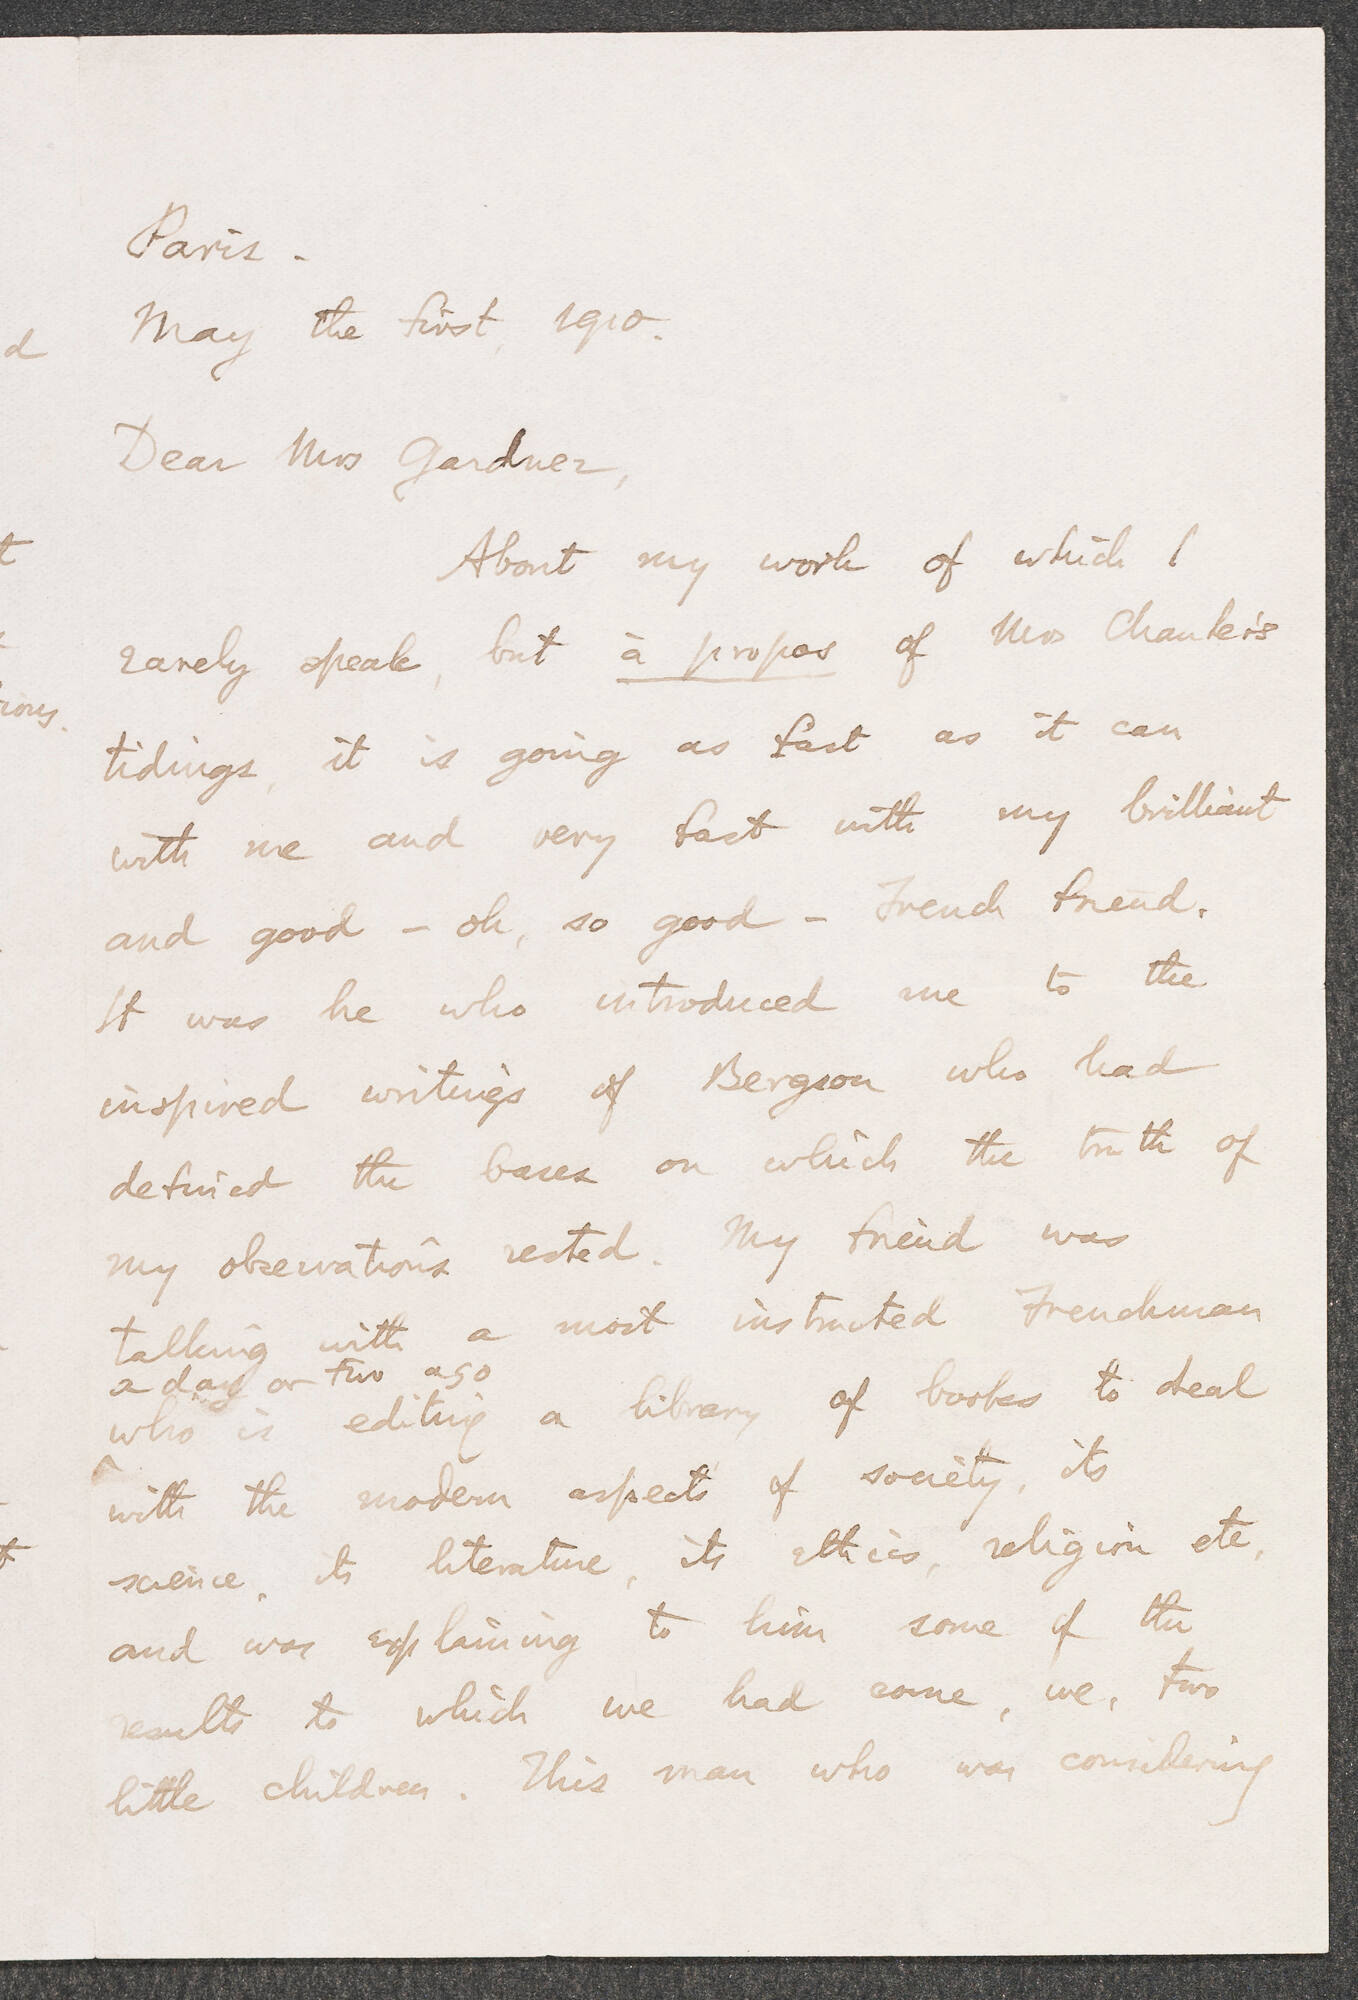 Paris.
May the first, 1910.
Dear Mrs Gardner,
About my work of which I
rarely speak, but à propos of Mrs Chanler's
tidings, it is going as fast as it can
with me and very fast with my brilliant
and good – oh, so good – French friend.
It was he who introduced me to the
inspired writings of Bergson who had
defined the bases on which the truth of
my observations rested. My friend was
talking with a most instructed Frenchman
a day or two ago
who is editing a library of books to deal
with the modern aspects of society, its
science, its literature, its ethics, religion etc,
and was explaining to him some of the
results to which we had come, we, two
little children. This man who was considering